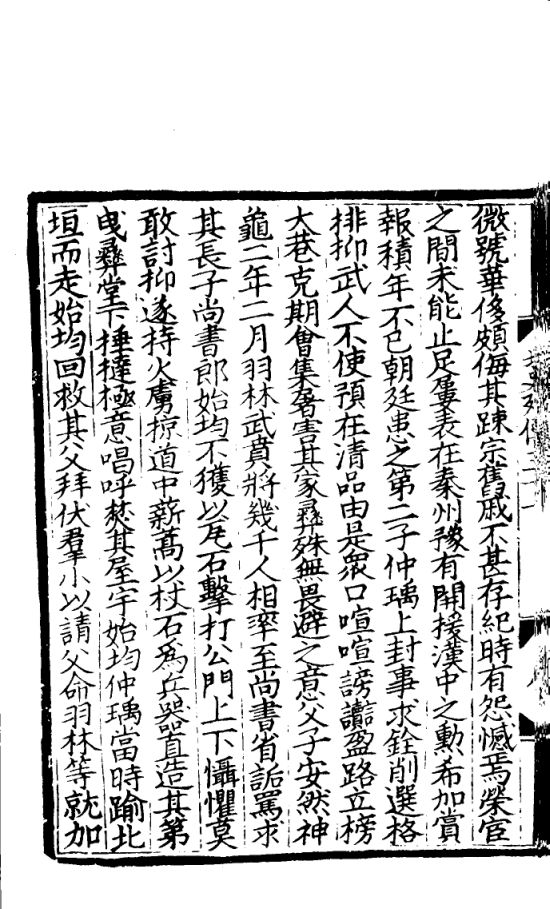 微號華侈頗侮其踈宗舊戚不甚存紀時有怨憾焉榮宦
之間未能止足屢表在秦州豫有開援漢中之勳希加賞
報積年不已朝廷患之第二子仲瑀上封事求銓削選格
排抑武人不使預在清品由是衆口喧喧謗讟盈路立榜
大巷克期會集屠害其家彝殊無畏避之意父子安然神
龜二年二月羽林武賁將幾千人相率至尚書省詬罵求
其長子尚書郎始均不獲以瓦石擊打公門上下懾懼莫
敢討抑遂持火虜掠道中薪蒿以杖石爲兵器直造其第
曳彝堂下捶撻極意唱呼焚其屋宇始均仲瑀當時踰北
垣而走始均回救其父拜伏羣小以請父命羽林等就加